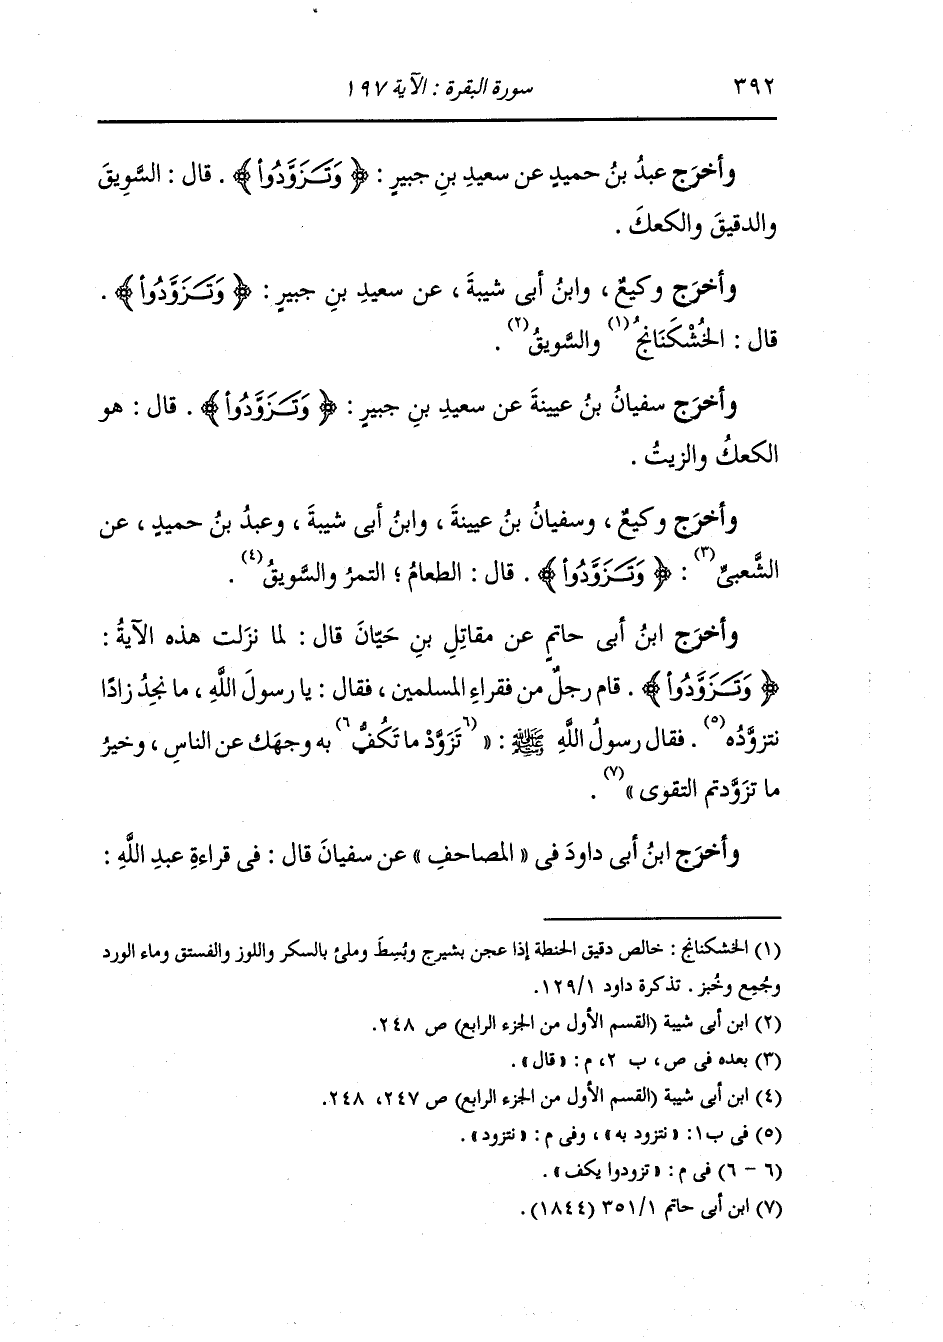 ٣٩٢ سورة البقرة : الآية ١٩٧
وأخرَج عبدُ بنُ حميدٍ عن سعيدِ بنِ جبيرٍ : ﴿ وَتَزَوَّدُوا۟ ﴾ . قال : السَّوِيقَ
والدقيقَ والكعكَ .
وأخرَج وكيعٌ ، وابنُ أبى شيبةَ ، عن سعيدِ بنِ جبيرٍ : ﴿ وَتَزَوَّدُوا۟ ﴾ .
قال : الخُشْكَنَانجُ(١) والسَّويقُ(٢) .
وأخرَج سفيانُ بنُ عيينةَ عن سعيدِ بنِ جبيرٍ : ﴿ وَتَزَوَّدُوا۟ ﴾ . قال : هو
الكعكُ والزيتُ .
وأخرَج وكيعٌ ، وسفيانُ بنُ عيينةَ ، وابنُ أبى شيبةَ ، وعبدُ بنُ حميدٍ ، عن
الشَّعبىِّ(٣) : ﴿ وَتَزَوَّدُوا۟ ﴾ . قال : الطعامُ ؛ التمرُ والسَّويقُ(٤) .
وأخرَج ابنُ أبى حاتمٍ عن مقاتلِ بنِ حَيّانَ قال : لما نزَلت هذه الآيةُ :
﴿ وَتَزَوَّدُوا۟ ﴾ . قام رجلٌ من فقراءِ المسلمين ، فقال : يا رسولَ اللَّهِ ، ما نجدُ زادًا
نتزوَّدُه(٥) . فقال رسولُ اللَّهِ ﷺ : « (٦تَزَوَّدْ ما تَكُفُّ٦) به وجهَك عن الناسِ ، وخيرُ
ما تزَوَّدتم التقوى »(٧) .
وأخرَج ابنُ أبى داودَ فى « المصاحفِ » عن سفيانَ قال : فى قراءةِ عبدِ اللَّهِ :
(١) الخشكنانج : خالص دقيق الحنطة إذا عجن بشيرج وبُسِطَ وملئ بالسكر واللوز والفستق وماء الورد
وجُمِع وخُبز . تذكرة داود ١٢٩/١.
(٢) ابن أبى شيبة (القسم الأول من الجزء الرابع) ص ٢٤٨.
(٣) بعده فى ص ، ب ٢، م : «قال» .
(٤) ابن أبى شيبة (القسم الأول من الجزء الرابع) ص ٢٤٧، ٢٤٨.
(٥) فى ب١: «نتزود به» ، وفى م : «نتزود» .
(٦ - ٦) فى م : «تزودوا يكف» .
(٧) ابن أبى حاتم ٣٥١/١ (١٨٤٤) .